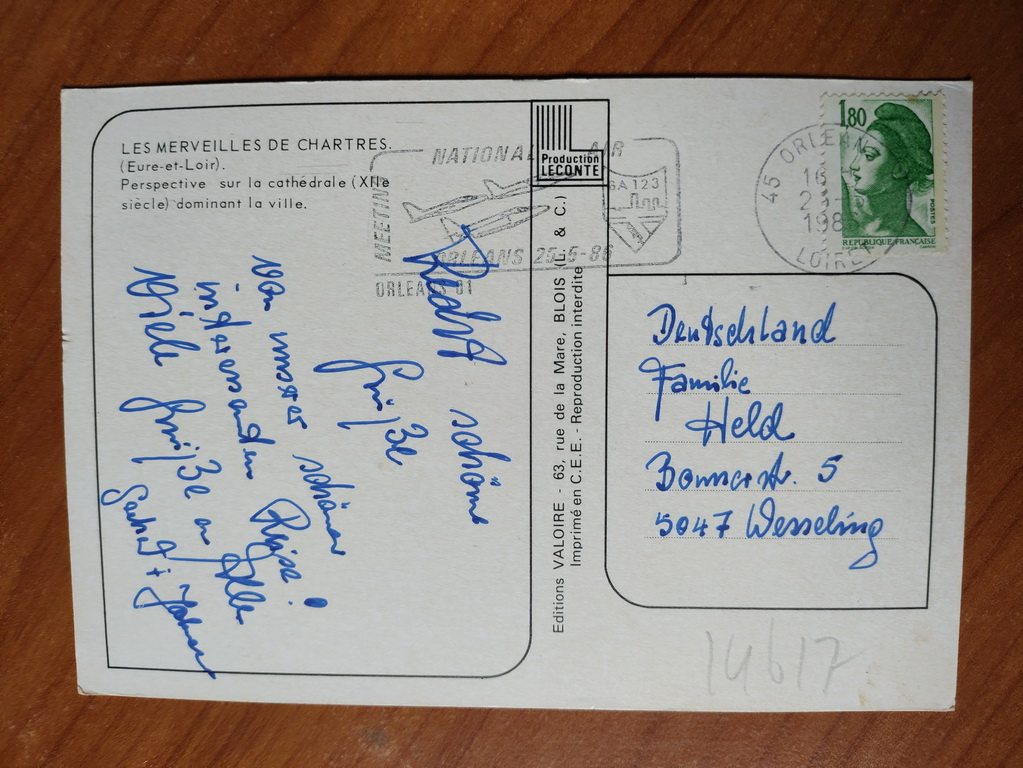 LES MERVEILLES DE CHARTRES.
(Eure-et-Loir).
Perspective sur la cathédrale (XIIe
siècle) dominant la ville.
Production
LECONTE
MEETING
NATIONAL AIR
BA 123
ORLEANS 25-5-86
ORLEANS 01
45 ORLEANS
16
LOIRET
1,80
POSTES
REPUBLIQUE FRANCAISE
Recht schöne
Grüße
von unserer schönen
interessanten Reise!
Viele Grüße an Alle
Editions VALOIRE - 63, rue de la Mare, BLOIS (L. & C.)
Imprimé en C.E.E. - Reproduction interdite
Deutschland
Familie
Held
Bonnerstr. 5
5047 Wesseling
14617